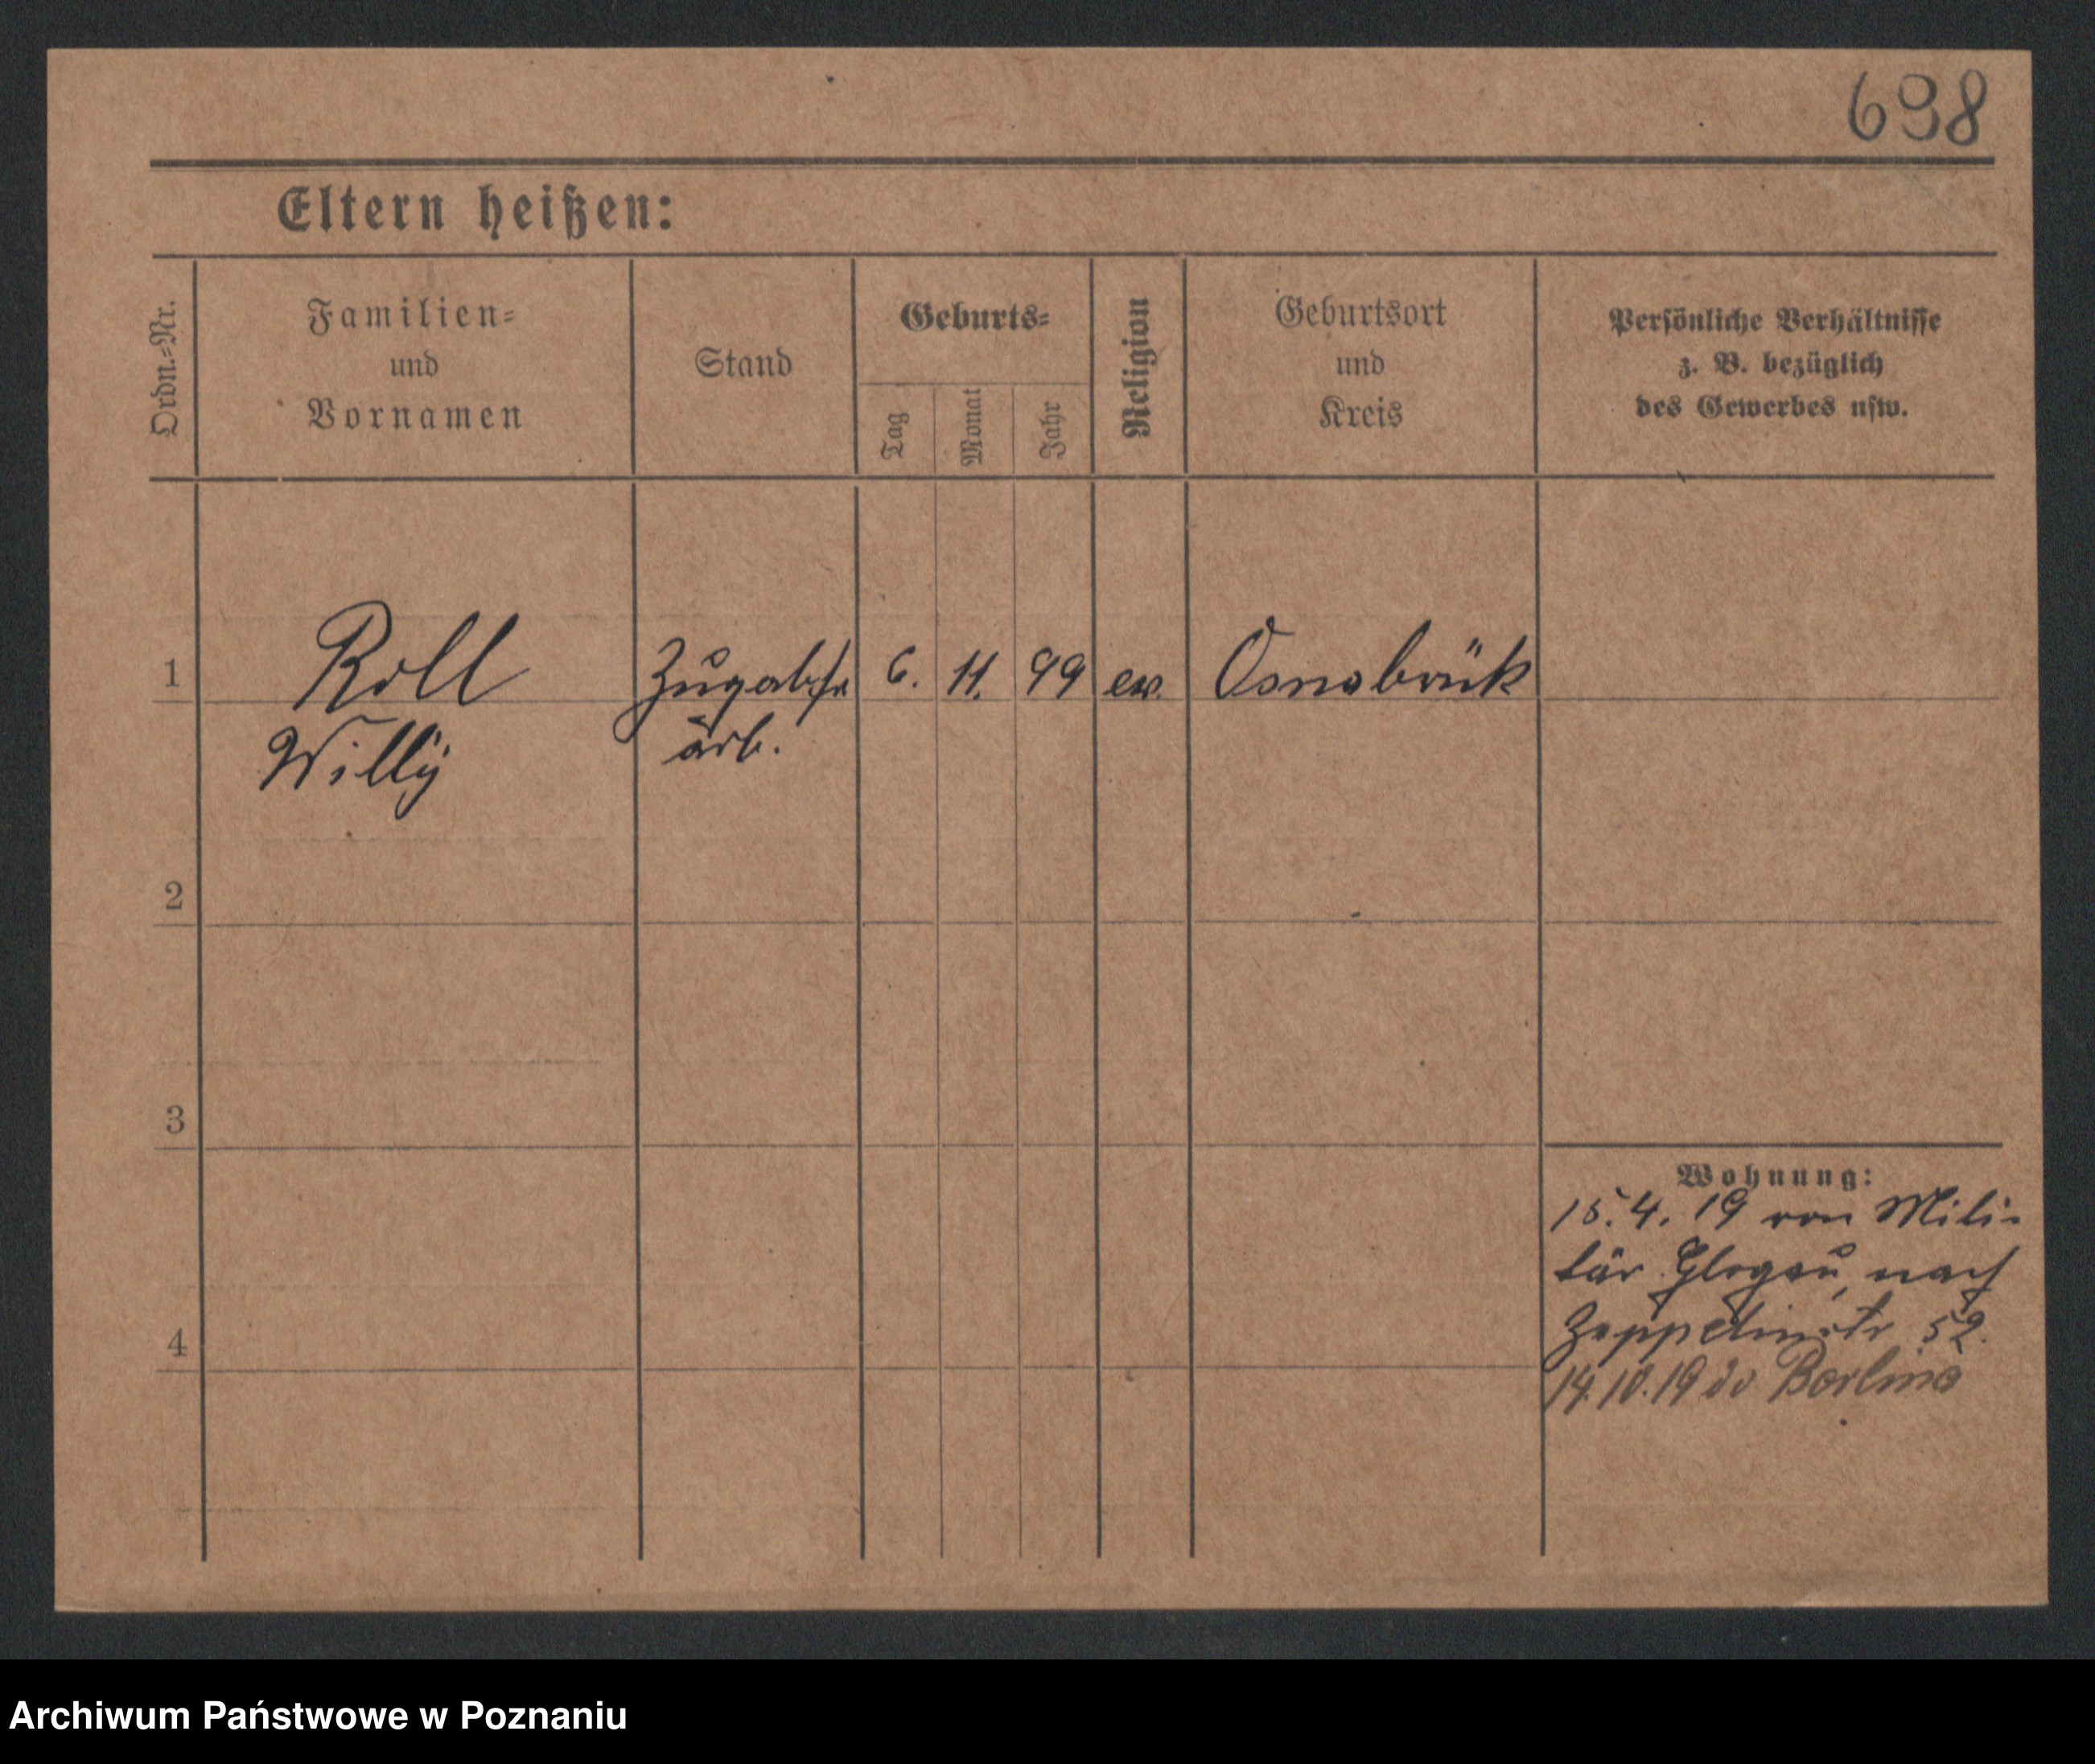 698
Eltern heißen:
Ordn.=Nr.
Familien=
und
Vornamen
Stand
Geburts=
Tag
Monat
Jahr
Religion
Geburtsort
und
Kreis
Persönliche Verhältnisse
z. B. bezüglich
des Gewerbes usw.
1
Roll
Willÿ
arb.
6. 11. 99 ev. Osnabrük
2
3
4
Wohnung:
15. 4. 19 von Mili-
tär Glogau, nach
Zeppelinstr 52.
14.10.19 do Berlina
Archiwum Państwowe w Poznaniu